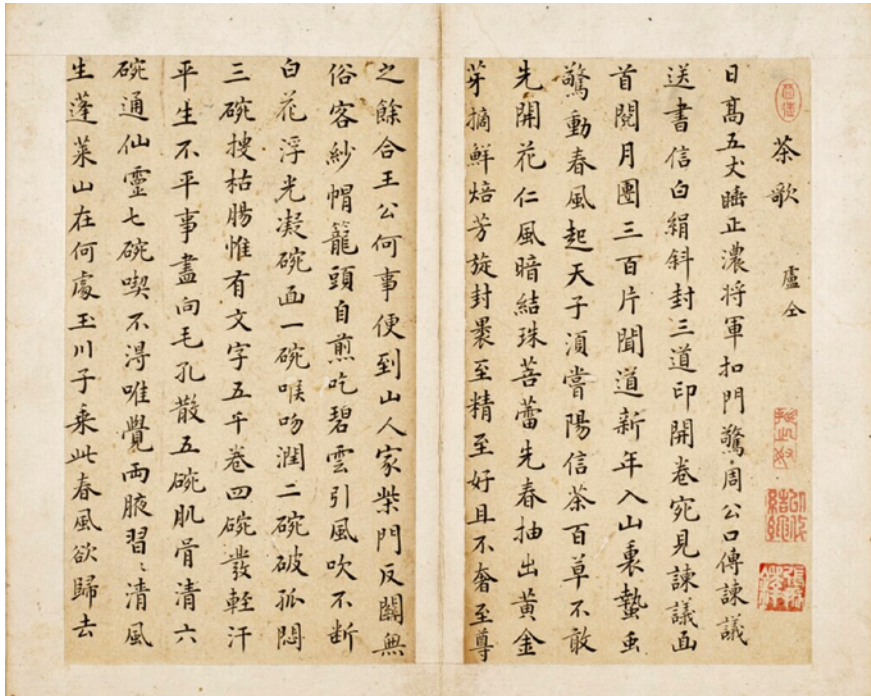 茶歌 盧仝
日高五丈睡正濃将軍扣門驚周公口傳諫議
送書信白絹斜封三道印開卷宛見諫議面
首閱月團三百片聞道新年入山裏蟄虫
驚動春風起天子須嘗陽信茶百草不敢
先開花仁風暗結珠菩蕾先春抽出黃金
芽摘鮮焙芳旋封裹至精至好且不奢至尊
之餘合王公何事便到山人家柴門反關無
俗客紗帽籠頭自煎吃碧雲引風吹不断
白花浮光凝碗面一碗喉吻潤二碗破孤悶
三碗搜枯腸惟有文字五千卷四碗發輕汗
平生不平事盡向毛孔散五碗肌骨清六
碗通仙靈七碗喫不淂唯覺兩腋習〻清風
生蓬萊山在何處玉川子乘此春風欲歸去